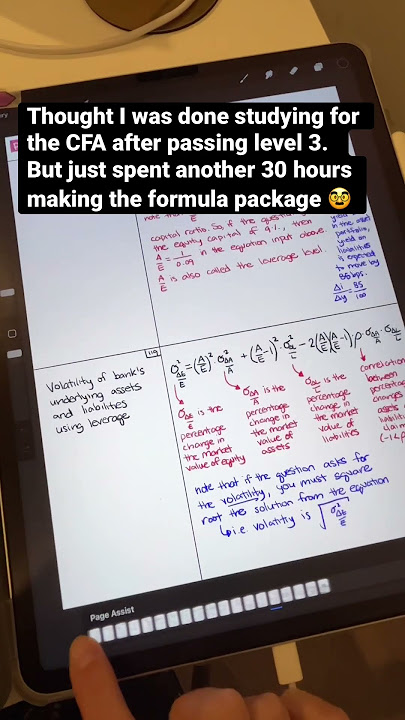 Thought I was done studying for
the CFA after passing level 3.
But just spent another 30 hours
making the formula package 🥸
capital ratio. So, if the question
the equity capital of 9%, then
A/E = 1/0.09 in the equation input above.
A/E is also called the leverage level.
yield
in the asset
portfolio,
yield on
liabilities
is expected
to move by
85bps.
Δi/Δy = 85/100
119
Volatility of bank's
underlying assets
and liabilities
using leverage
σ²_ΔE/E = (A/E)² σ²_ΔA/A + (A/E - 1)² σ²_ΔL/L - 2(A/E)(A/E - 1) ρ σ_ΔA/A σ_ΔL/L
σ_ΔE/E is the
percentage
change in
the market
value of equity
σ_ΔA/A is the
percentage
change in
the market
value of
assets
σ_ΔL/L is the
percentage
change in
the market
value of
liabilities
correlation
between
percentage
changes
assets
note that if the question asks for
the volatility, you must square
root the solution from the equation
↳ i.e. volatility is √σ²_ΔE/E
Page Assist